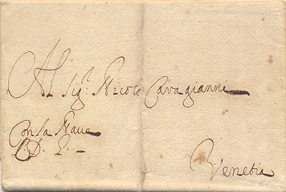 Al Sig.r Nicolo Cavagianni
Con la Naue
Venetia